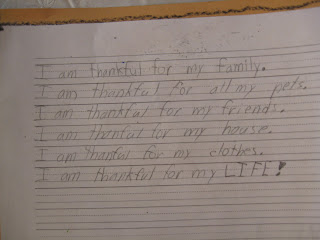 I am thankful for my family.
I am thankful for all my pets.
I am thankful for my friends.
I am thanful for my house.
I am thanful for my clothes.
I am thankful for my LIFE!